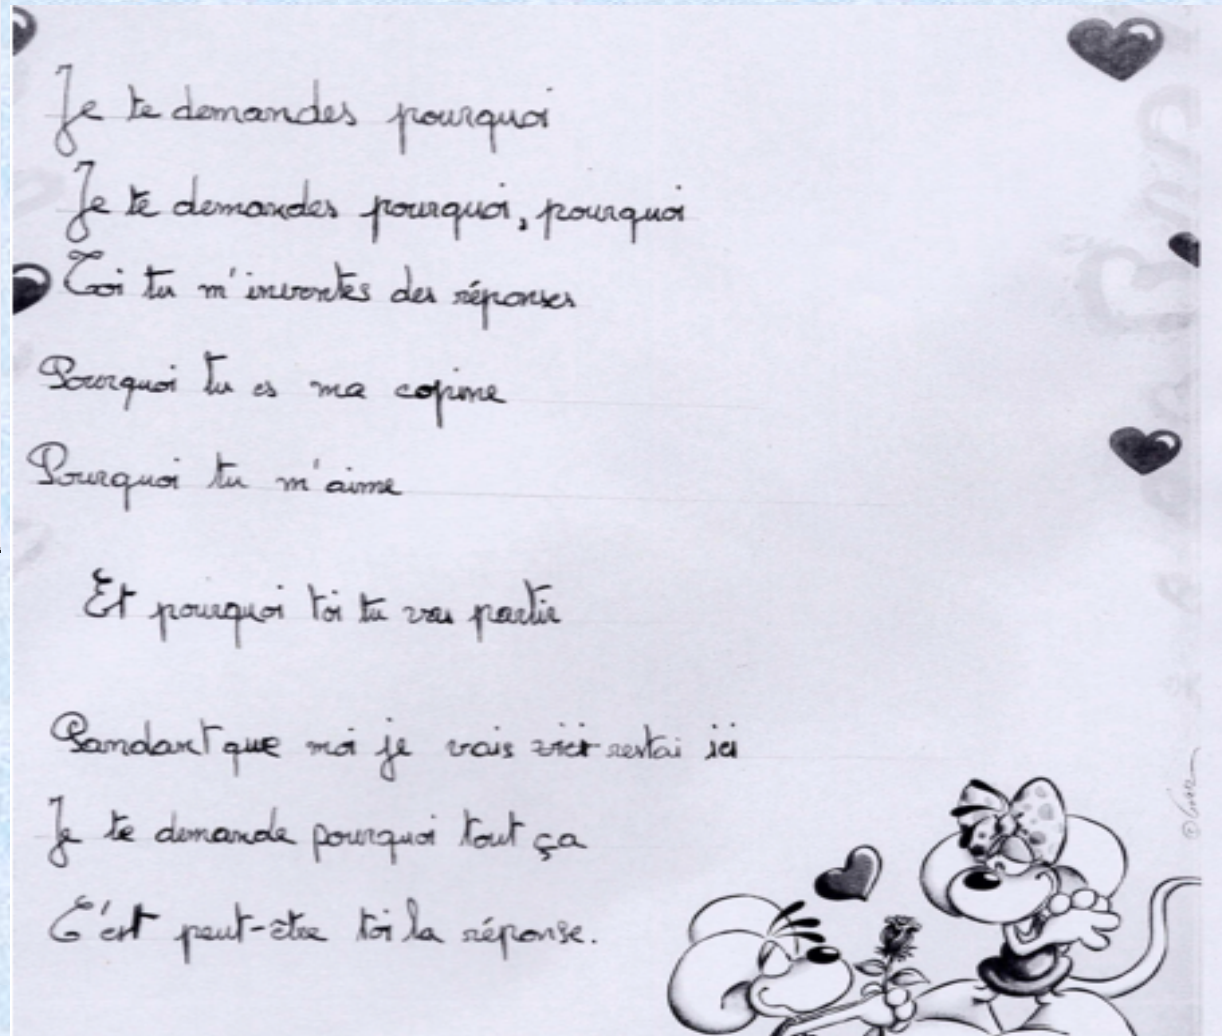 Je te demandes pourquoi
Je te demandes pourquoi, pourquoi
Toi tu m'inventes des réponses
Pourquoi tu es ma copine
Pourquoi tu m'aime
Et pourquoi toi tu vas partir
Pandant que moi je vais restai ici
Je te demande pourquoi tout ça
C'est peut-être toi la réponse.